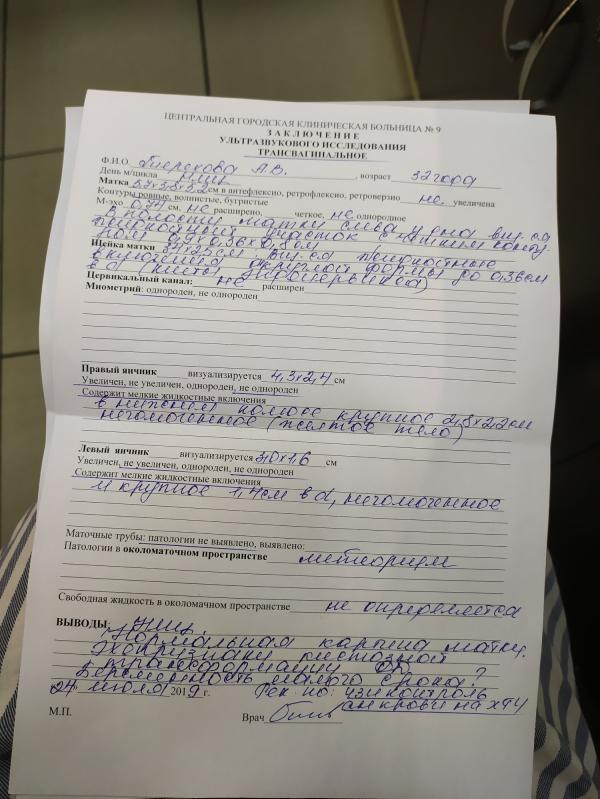 ЦЕНТРАЛЬНАЯ ГОРОДСКАЯ КЛИНИЧЕСКАЯ БОЛЬНИЦА № 9
З А К Л Ю Ч Е Н И Е
УЛЬТРАЗВУКОВОГО ИССЛЕДОВАНИЯ
ТРАНСВАГИНАЛЬНОЕ
Ф.И.О. А.В. , возраст 32 года
День м/цикла
Матка см в антефлексио, ретрофлексио, ретроверзио не увеличена
Контуры ровные, волнистые, бугристые
М-эхо 0,74 см, не расширено, четкое, не однородное
В полости матки слева у дна виз.ся
участок с контуром
0,36х0,8см
Шейка матки виз. ся полностью
включения округлой формы до 0,36см
в d (кисты
Цервикальный канал: не расширен
Миометрий: однороден, не однороден
Правый яичник визуализируется 4,3х2,4 см
Увеличен, не увеличен, однороден, не однороден
Содержит мелкие жидкостные включения
в нижнем полюсе крупное 2,8х2,2см
негомогенное (желтое тело)
Левый яичник визуализируется 3,0х1,6 см
Увеличен, не увеличен, однороден, не однороден
Содержит мелкие жидкостные включения
и крупное 1,4см в d, негомогенное
Маточные трубы: патологии не выявлено, выявлено:
Патологии в околоматочном пространстве метеоризм
Свободная жидкость в околомачном пространстве не определяется
ВЫВОДЫ:
Нормальная картина матки.
Эхопризнаки кистозной
трансформации
Беременность малого срока?
24 июля 2019 г. Рек-но: УЗИ контроль
ан. крови на ХГЧ
М.П.
Врач